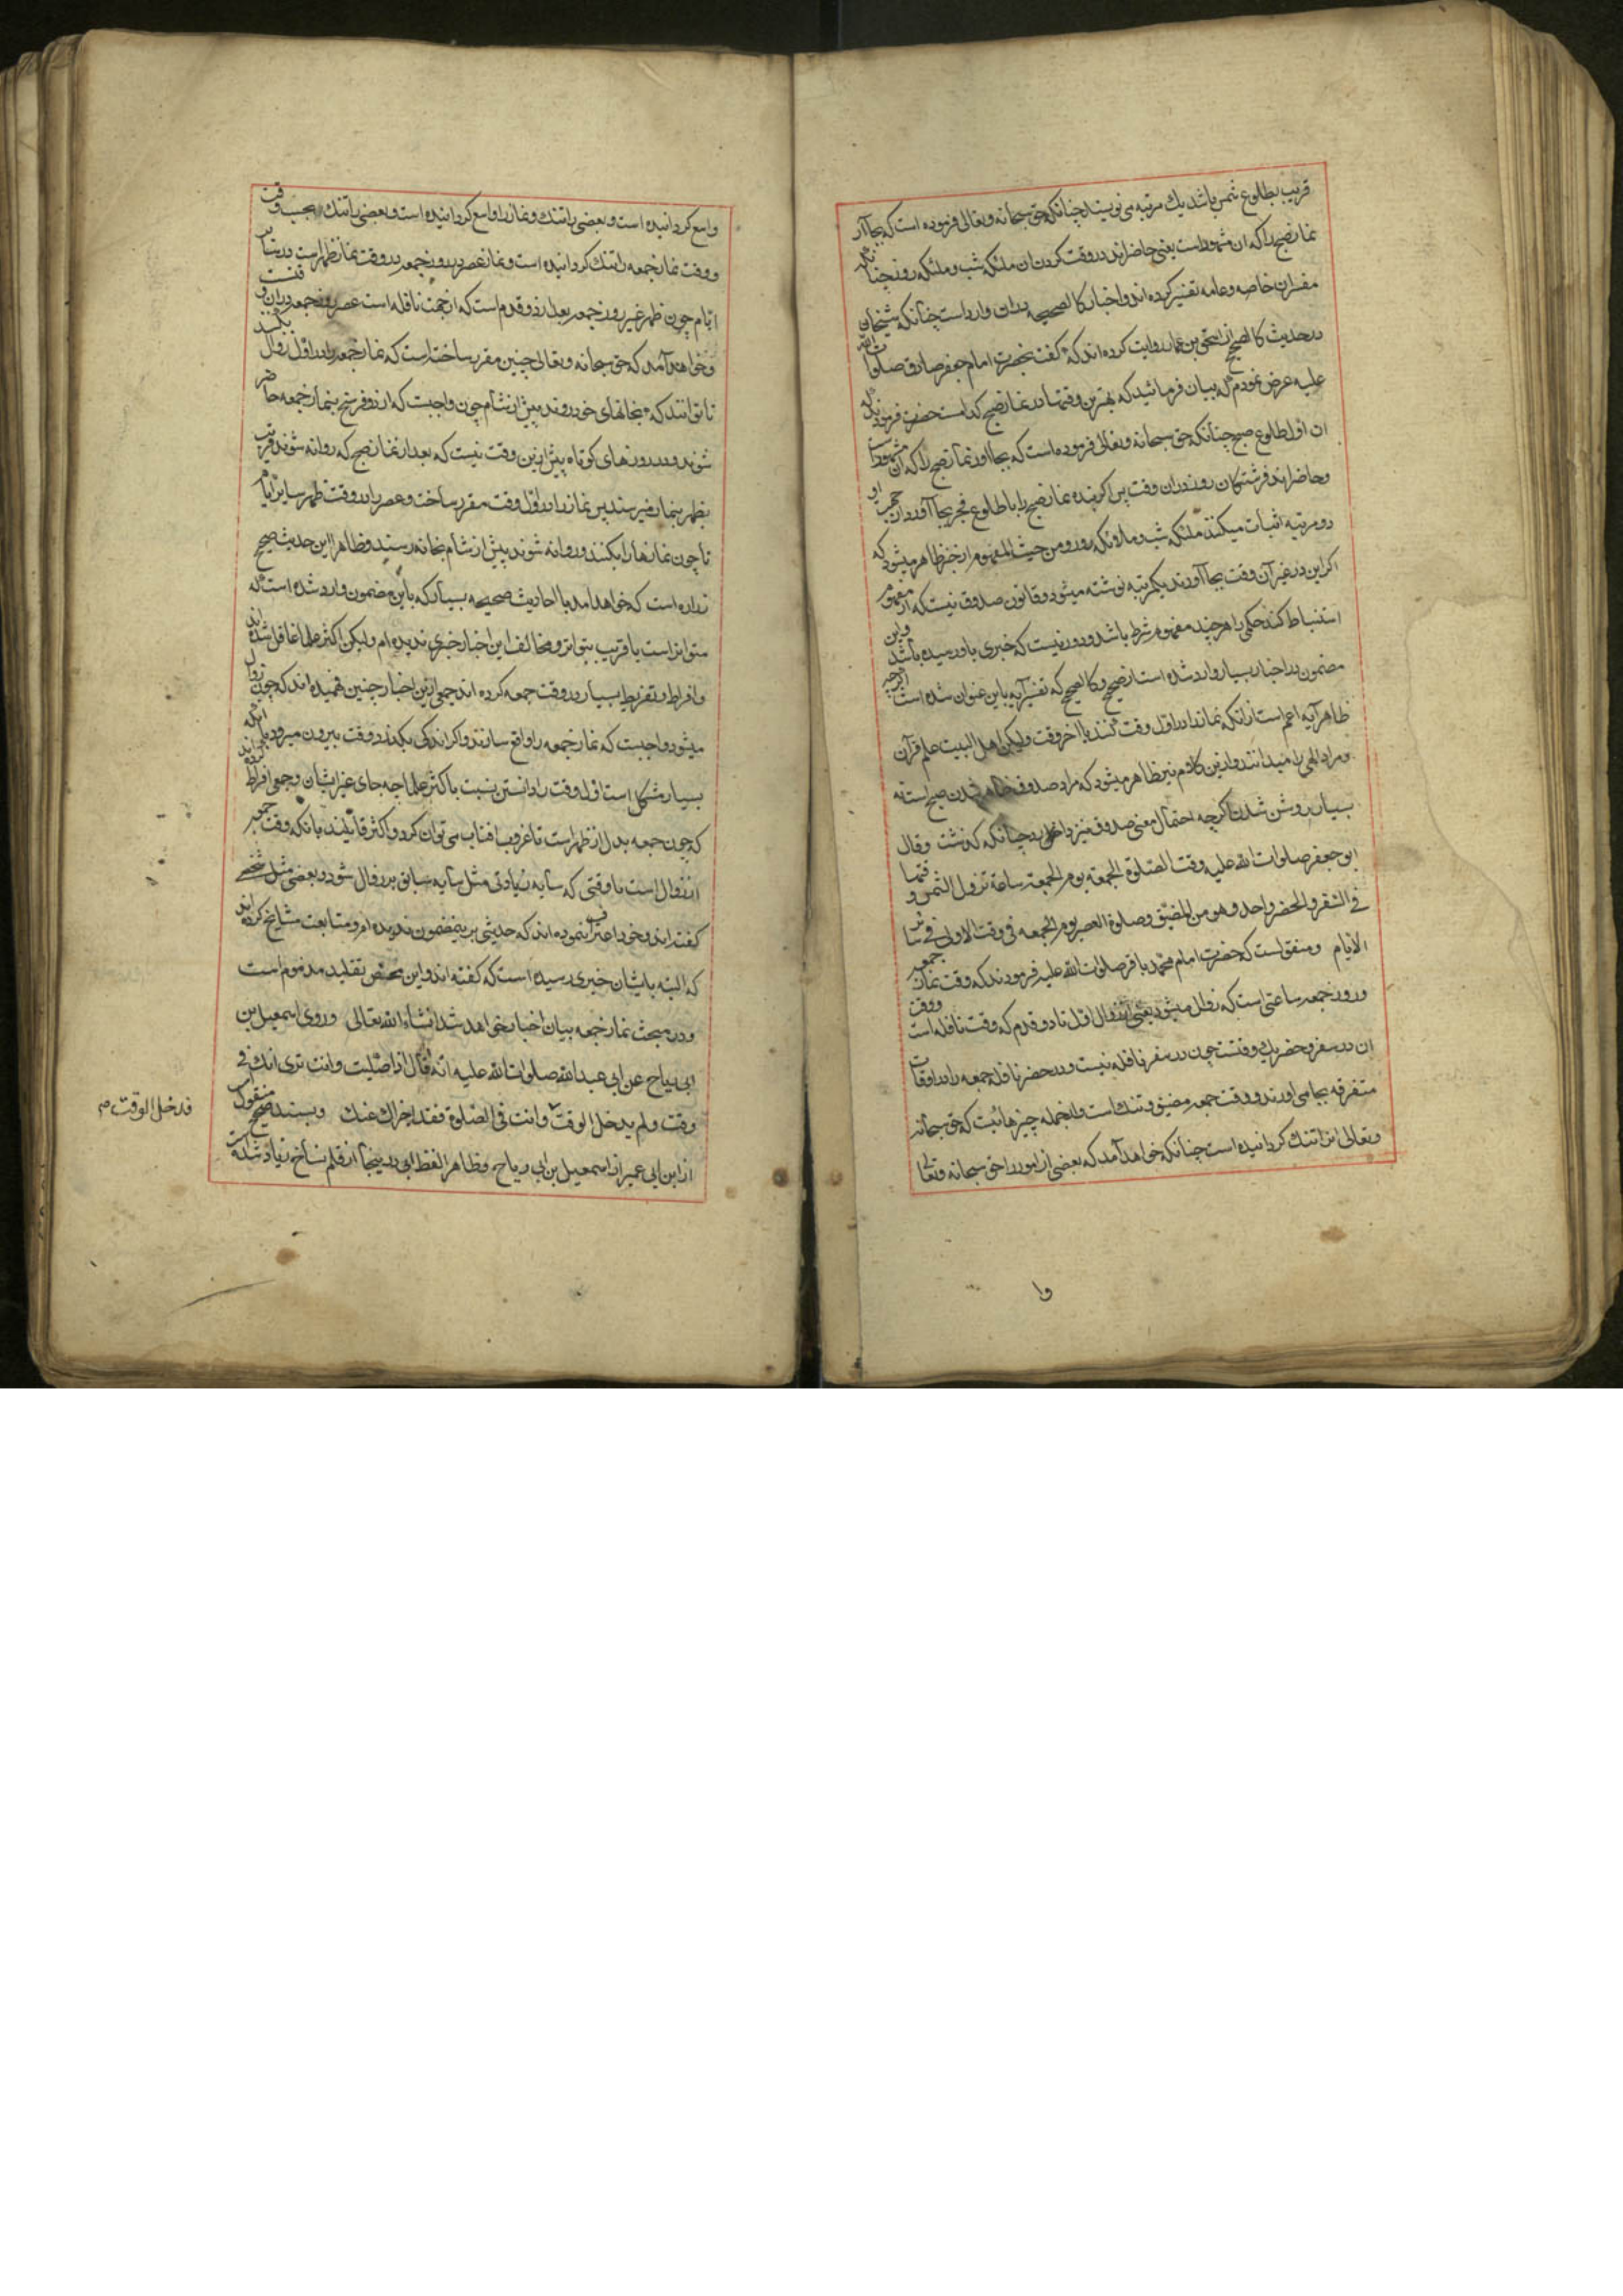 قریب بطلوع شمس باشد یك مرتبه می نویسند چنانکه حق سبحانه و تعالی فرموده است که بجا آر
نماز صبح را که ان مشهود است یعنی حاضراند در وقت کردن ان ملئکه شب و ملئکه روز چنانکه
مفسران خاصه و عامه تفسیر کرده اند و اخبار کالصحیحه بران وارد است چنانکه شیخان
در حدیث کالصحیح از اسحق بن عمار روایت کرده اند که گفت بحضرت امام جعفر صادق صلوات الله
علیه عرض نمودم که بیان فرمائید که بهترین وقتها در نماز صبح کدامست حضرت فرمودند که
ان اول طلوع صبح چنانکه حق سبحانه و تعالی فرموده است که بجا اور نماز صبح را که ان مشهود است
و حاضراند فرشتگان روز در ان وقت پس اکر بنده نماز صبح را با طلوع فجر بجا آورد از جهة او
دو مرتبه اثبات میکنند ملئکه شب و ملائکه روز و من حیث المفهوم از خبر ظاهر میشود که
اکر این در غیر آن وقت بجا آورند یکمرتبه نوشته میشود و قانون صدوق نیست که از مفهوم
استنباط کند حکمی را هر چند مفهوم شرط باشد و دور نیست که خبری باو رسیده باشد و این
مضمون در اخبار بسیار وارد شده است از صحیح و کالصحیح که تفسیر آیه باین عنوان شده است اگرچه
ظاهر آیه اعم است از انکه نماز را در اول وقت کنند یا اخر وقت ولیکن اهل البیت علم قرآن
و مراد الهی را میدانند و ازین کلام نیز ظاهر میشود که مراد صدوق ظاهر شدن صبح است نه
بسیار روشن شدن اکرچه احتمال معنی صدوق نیز داخل بود چنانکه کذشت وقال
ابو جعفر صلوات الله علیه وقت الصلوة الجمعة یوم الجمعة ساعة تزول الشمس و وقتها
فی السفر و الحضر واحد و هو من المضیق و صلوة العصر یوم الجمعه فی وقت الاولی فی سائر
الایام و منقولست که حضرت امام محمد باقر صلوات الله علیه فرمودند که وقت نماز جمعه
در روز جمعه ساعتی است که زوال میشود یعنی از زوال اول تا دو قدم که وقت نافله است و وقت
ان در سفر و حضر یك وقتست چون در سفر نافله نیست و در حضر نافله جمعه را در اوقات
متفرقه بجا می اورند و وقت جمعه مضیق و تنك است و از جمله چیزهائیست که حق سبحانه
و تعالی انرا تنك کردانیده است چنانکه خواهد آمد که بعضی از امور را حق سبحانه و تعالی
وا
واسع کردانیده است و بعضی را تنك و نماز را واسع کردانیده است و بعضی را تنك بحسب وقت
و وقت نماز جمعه را تنك کردانیده است و نماز عصر در روز جمعه در وقت نماز ظهر است در سایر
ایام چون ظهر غیر روز جمعه بعد از دو قدم است که از جهت نافله است عصر روز جمعه دران وقتست
و خواهد آمد که حق سبحانه و تعالی چنین مقرر ساخته است که نماز جمعه را در اول زوال بکنند
تا توانند که بخانهای خود روند پیش از شام چون واجبست که از دو فرسخ بنماز جمعه حاضر
شوند و در روزهای کوتاه پیش ازین وقت نیست که بعد از نماز صبح که روانه شوند قریب
بظهر بنماز میرسند پس نماز را در اول وقت مقرر ساخت و عصر را در وقت ظهر سایر ایام
تا چون نمازها را بکنند و روانه شوند پیش از شام بخانه رسند و ظاهرا این حدیث صحیح
زراره است که خواهد امد با احادیث صحیحه بسیار که باین مضمون وارد شده است که
متواتر است یا قریب بتواتر و مخالف این اخبار خبری ندیده ام ولیکن اکثر علما غافل شده اند
و افراط و تفریط بسیار در وقت جمعه کرده اند جمعی ازین اخبار چنین فهمیده اند که چون زوال
میشود واجبست که نماز جمعه را واقع سازند و اکر اندکی بکذرد وقت بیرون میرود با آنکه
بسیار مشکل است اول وقت را دانستن نسبت باکثر علما چه جای غیر ایشان و جمعی افراط کرده اند
که چون جمعه بدل از ظهر است تا غروب افتاب می توان کرد و اکثر قائلیند بانکه وقت جمعه
از زوال است تا وقتی که سایه زیادتی مثل سایه سابق بر زوال شود و بعضی مثل شخص
کفته اند و خود اعتراف نموده اند که حدیثی برینمضمون ندیده ام و متابعت مشایخ کرده اند
که البته بایشان خبری رسیده است که کفته اند و این محض تقلید مذموم است
و در مبحث نماز جمعه بیان اخبار خواهد شد انشاء الله تعالی و روی اسمعیل بن
ابی ریاح عن ابی عبد الله صلوات الله علیه انه قال اذا صلیت و انت تری انك فی
وقت و لم یدخل الوقت و انت فی الصلوة فقد اجزات عنك و بسند صحیح منقول است
از ابن ابی عمیر از اسمعیل بن ابی ریاح و ظاهرا لفظ ابی در ینجا از قلم نساخ زیاد شده
فدخل الوقت ص